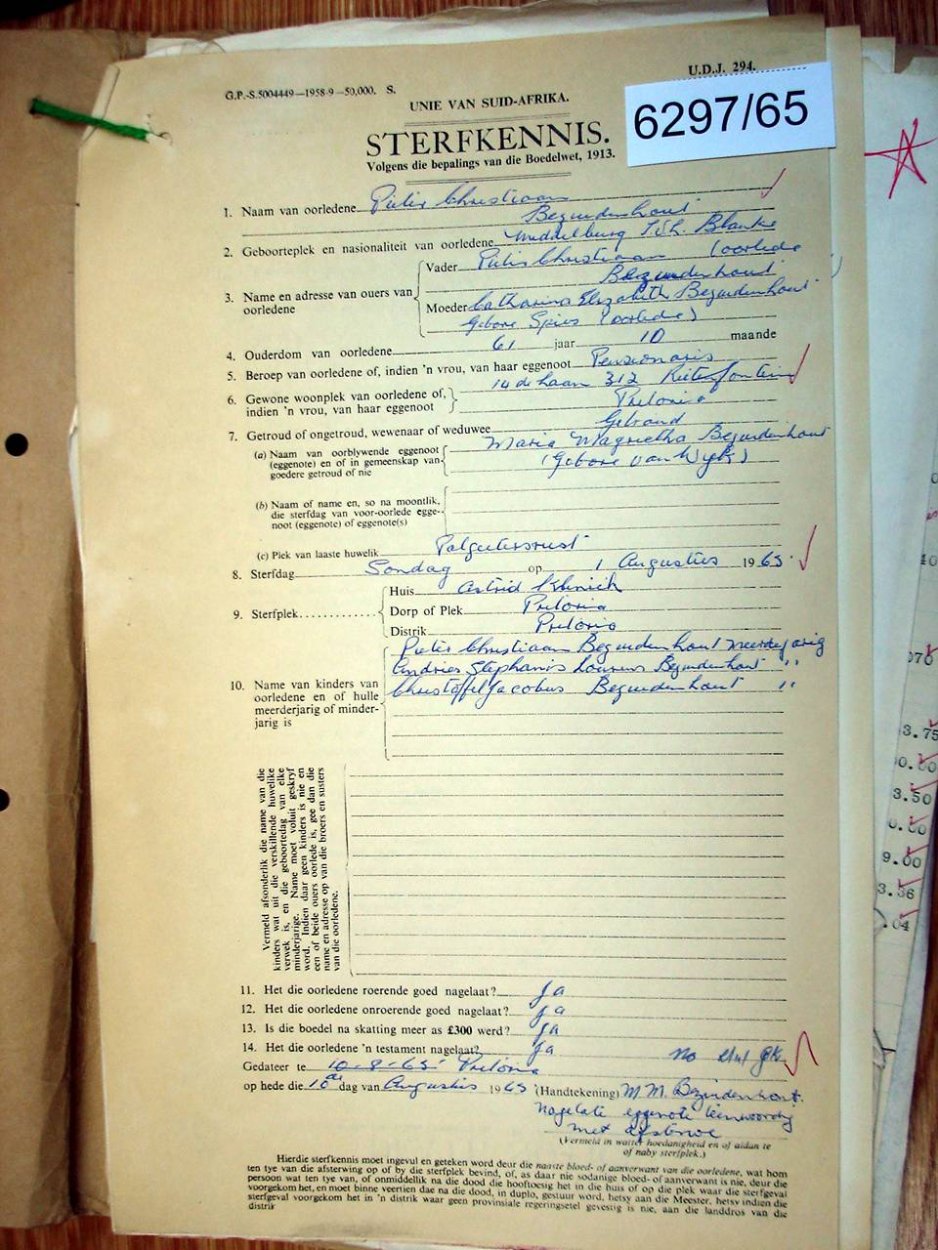 U.D.J. 294.
G.P.-S.5004449—1958-9—50,000. S.
6297/65
UNIE VAN SUID-AFRIKA.
STERFKENNIS.
Volgens die bepalings van die Boedelwet, 1913.
1. Naam van oorledene Pieter Christiaan
Bezuidenhout
2. Geboorteplek en nasionaliteit van oorledene Middelburg Tvl. Blanke
3. Name en adresse van ouers van oorledene
Vader Pieter Christiaan (oorlede
Bezuidenhout
Moeder Catharina Elizabeth Bezuidenhout
Gebore Spies (oorlede)
4. Ouderdom van oorledene 61 jaar 10 maande
5. Beroep van oorledene of, indien 'n vrou, van haar eggenoot Pensionaris
6. Gewone woonplek van oorledene of, indien 'n vrou, van haar eggenoot
14 de laan 313 Rietfontein
Pretoria
7. Getroud of ongetroud, wewenaar of weduwee Getroud
(a) Naam van oorblywende eggenoot (eggenote) en of in gemeenskap van goedere getroud of nie
Maria Magrietha Bezuidenhout
(Gebore van Wyk)
(b) Naam of name en, so na moontlik, die sterfdag van voor-oorlede eggenoot (eggenote) of eggenote(s)
(c) Plek van laaste huwelik Potgietersrust
8. Sterfdag Sondag op 1 Augustus 1965
9. Sterfplek
Huis Astrid Kliniek
Dorp of Plek Pretoria
Distrik Pretoria
10. Name van kinders van oorledene en of hulle meerderjarig of minderjarig is
Pieter Christiaan Bezuidenhout meerderjarig
Andries Stephanis Lourens Bezuidenhout "
Christoffel Jacobus Bezuidenhout "
Vermeld afsonderlik die name van die
kinders wat uit die verskillende huwelike
verwek is, en die geboortedag van elke
minderjarige. Name moet voluit geskryf
word. Indien daar geen kinders is nie en
een of beide ouers oorlede is, gee dan die
name en adresse op van die broers en susters
van die oorledene.
11. Het die oorledene roerende goed nagelaat? Ja
12. Het die oorledene onroerende goed nagelaat? Ja
13. Is die boedel na skatting meer as £300 werd? Ja
14. Het die oorledene 'n testament nagelaat? Ja
Gedateer te 10-8-65 Pretoria
op hede die 10de dag van Augustus 1965 (Handtekening) M M. Bezuidenhout.
Nagelate eggenote teenwoordig
met afsterwe
(Vermeld in watter hoedanigheid en of aldan te
of naby sterfplek.)
Hierdie sterfkennis moet ingevul en geteken word deur die naaste bloed- of aanverwant van die oorledene, wat hom
ten tye van die afsterwing op of by die sterfplek bevind, of, as daar nie sodanige bloed- of aanverwant is nie, deur die
persoon wat ten tye van, of onmiddellik na die dood die hooftoesig het in die huis of op die plek waar die sterfgeval
voorgekom het, en moet binne veertien dae na die dood, in duplo, gestuur word, hetsy aan die Meester, hetsy indien die
sterfgeval voorgekom het in 'n distrik waar geen provinsiale regeringsetel gevestig is nie, aan die landdros van die
distrik
3.75
3.50
9.00